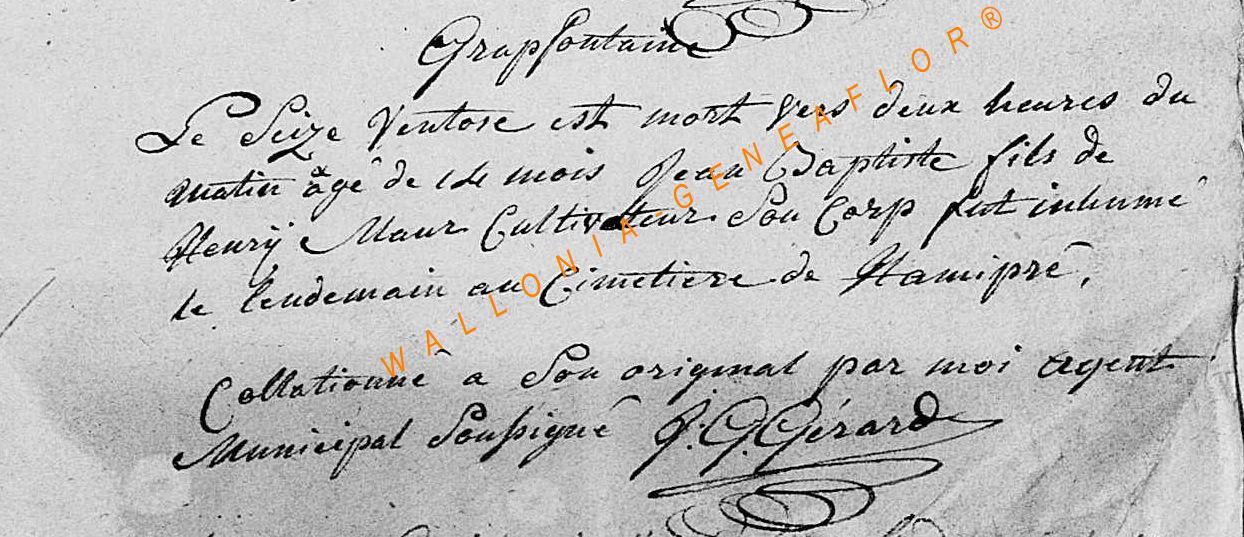 Grapfontaine
Le Seize Ventose est mort vers deux heures du
matin âgé de 14 mois Jean Baptiste fils de
Henrÿ Maur Cultivateur. Son Corp fut inhumé
le lendemain au Cimetiere de Hamipré.
Collationné a Son original par moi agent
Municipal Soussigné J. G. Gérard
WALLONIA-GENEAFLOR®